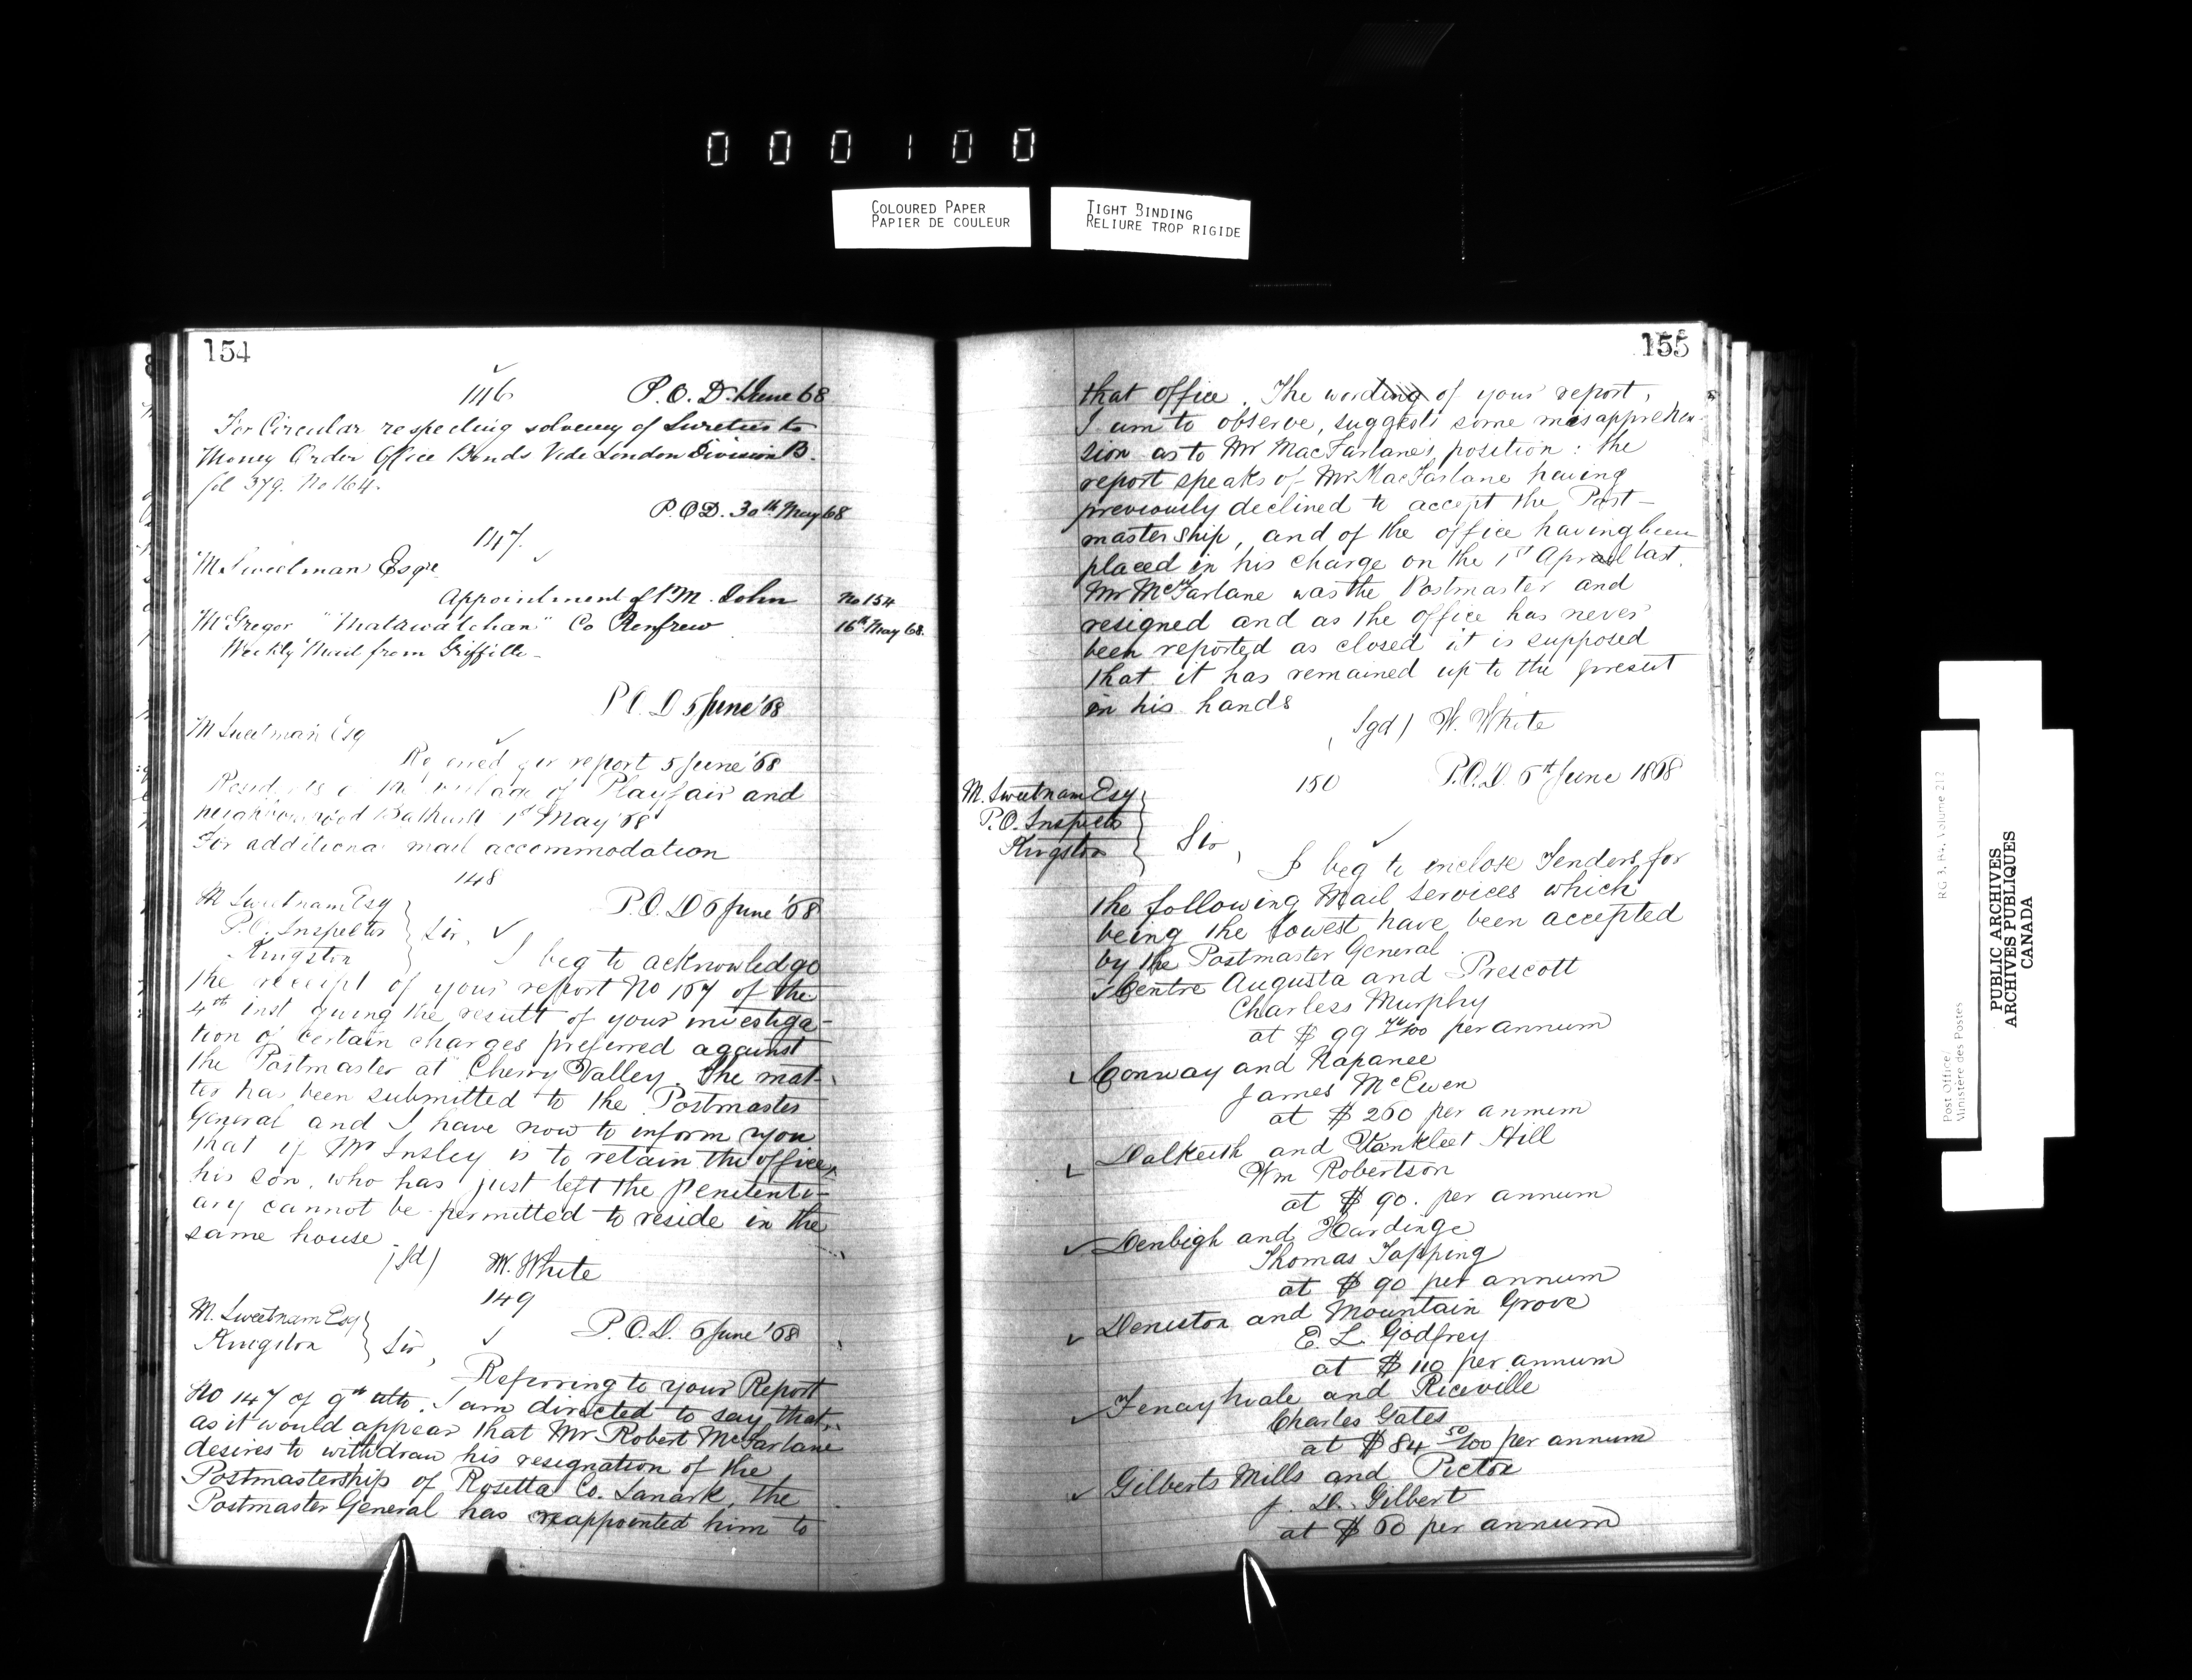 000100
COLOURED PAPER
PAPIER DE COULEUR
TIGHT BINDING
RELIURE TROP RIGIDE
154
146 P.O.D. June 68
For Circular respecting solvency of Sureties to
Money Order Office Bonds Vide London Division B.
fol 379. No 164.
P.O.D. 30th May 68
147.
M. Sweetnam Esqre
Appointment of P.M. John No 154
McGregor "Matawatchan" Co Renfrew 16th May 68.
Weekly Mail from Griffith
P.O.D 5 June '68
M Sweetnam Esq
report 5 June '68
Residents of the village of Playfair and
neighbourhood Bathurst 1st May '68
For additional mail accommodation
148
M Sweetnam Esq
P.O. Inspector
Kingston
Sir, P.O.D 6 June '68
I beg to acknowledge
the receipt of your report No 167 of the
4th inst giving the result of your investiga-
tion of certain charges preferred against
the Postmaster at Cherry Valley. The mat-
ter has been submitted to the Postmaster
General and I have now to inform you
that if Mr Insley is to retain the office,
his son, who has just left the Penitenti-
ary cannot be permitted to reside in the
same house
(sd) W. White
149
M. Sweetnam Esq
Kingston
Sir, P.O.D. 6 June '68
Referring to your Report
No 147 of 9th ulto. I am directed to say that,
as it would appear that Mr Robert McFarlane
desires to withdraw his resignation of the
Postmastership of Rosetta Co. Lanark, the
Postmaster General has reappointed him to
155
that office. The wording of your report,
I am to observe, suggests some misapprehen-
sion as to Mr MacFarlane's position: the
report speaks of Mr MacFarlane having
previously declined to accept the Post-
mastership, and of the office having been
placed in his charge on the 1st April last.
Mr McFarlane was the Postmaster and
resigned and as the office has never
been reported as closed it is supposed
that it has remained up to the present
in his hands
(sgd) W. White
150 P.O.D. 6th June 1868
M. Sweetnam Esq
P.O. Inspector
Kingston
Sir,
I beg to enclose Tenders for
the following Mail Services which
being the lowest have been accepted
by the Postmaster General
Centre Augusta and Prescott
Charless Murphy
at $ 99 /100 per annum
Conway and Napanee
James McEwen
at $ 260 per annum
Dalkeith and Vankleet Hill
Wm Robertson
at $ 90. per annum
Denbigh and Hardinge
Thomas Tapping
at $ 90 per annum
Deniston and Mountain Grove
E. L. Godfrey
at $ 110 per annum
Fenaghvale and Riceville
Charles Gates
at $ 84 50/100 per annum
Gilberts Mills and Picton
J. D. Gilbert
at $ 60 per annum
Post Office/
Ministère des Postes
RG 3, B4, Volume 212
PUBLIC ARCHIVES
ARCHIVES PUBLIQUES
CANADA